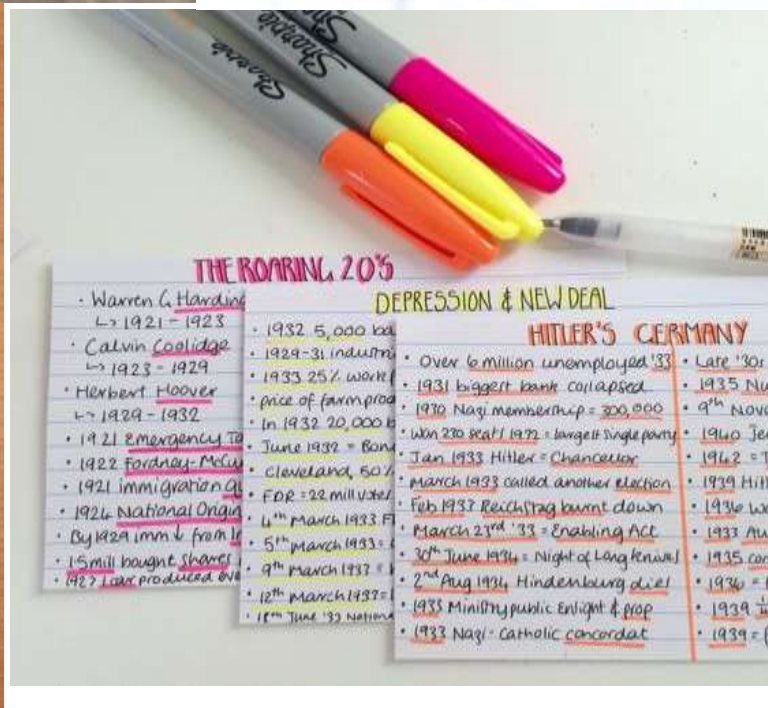 Sharpie
Sharpie
Sharpie
THE ROARING 20'S
• Warren G Harding
↳ 1921 - 1923
• Calvin Coolidge
↳ 1923 - 1929
• Herbert Hoover
↳ 1929 - 1932
• 1921 Emergency Ta
• 1922 Fordney-McCu
• 1921 immigration qu
• 1924 National Origin
• By 1929 imm ↓ from
• 1.5mill bought shares
• 1927 1 car produced eve
DEPRESSION & NEW DEAL
• 1932 5,000 ba
• 1929-31 industri
• 1933 25% work f
• price of farm prod
• In 1932 20,000 b
• June 1932 = Bon
• Cleveland, 50%
• FDR = 22 mill votes
• 4th March 1933 F
• 5th March 1933 =
• 9th March 1933 =
• 12th March 1933 =
• 18th June '33 Nationa
HITLER'S GERMANY
• Over 6 million unemployed '33
• 1931 biggest bank collapsed
• 1930 Nazi membership = 300,000
• Won 230 seats 1932 = largest single party
• Jan 1933 Hitler = Chancellor
• March 1933 called another election
• Feb 1933 Reichstag burnt down
• March 23rd '33 = Enabling Act
• 30th June 1934 = Night of Long knives
• 2nd Aug 1934 Hindenburg dies
• 1933 Ministry public Enlight & prop
• 1933 Nazi - Catholic concordat
• Late '30s
• 1935 Nu
• 9th Nov
• 1940 Je
• 1942 =
• 1939 Hitl
• 1936 W
• 1933 Au
• 1935 con
• 1936 =
• 1939
• 1939 =